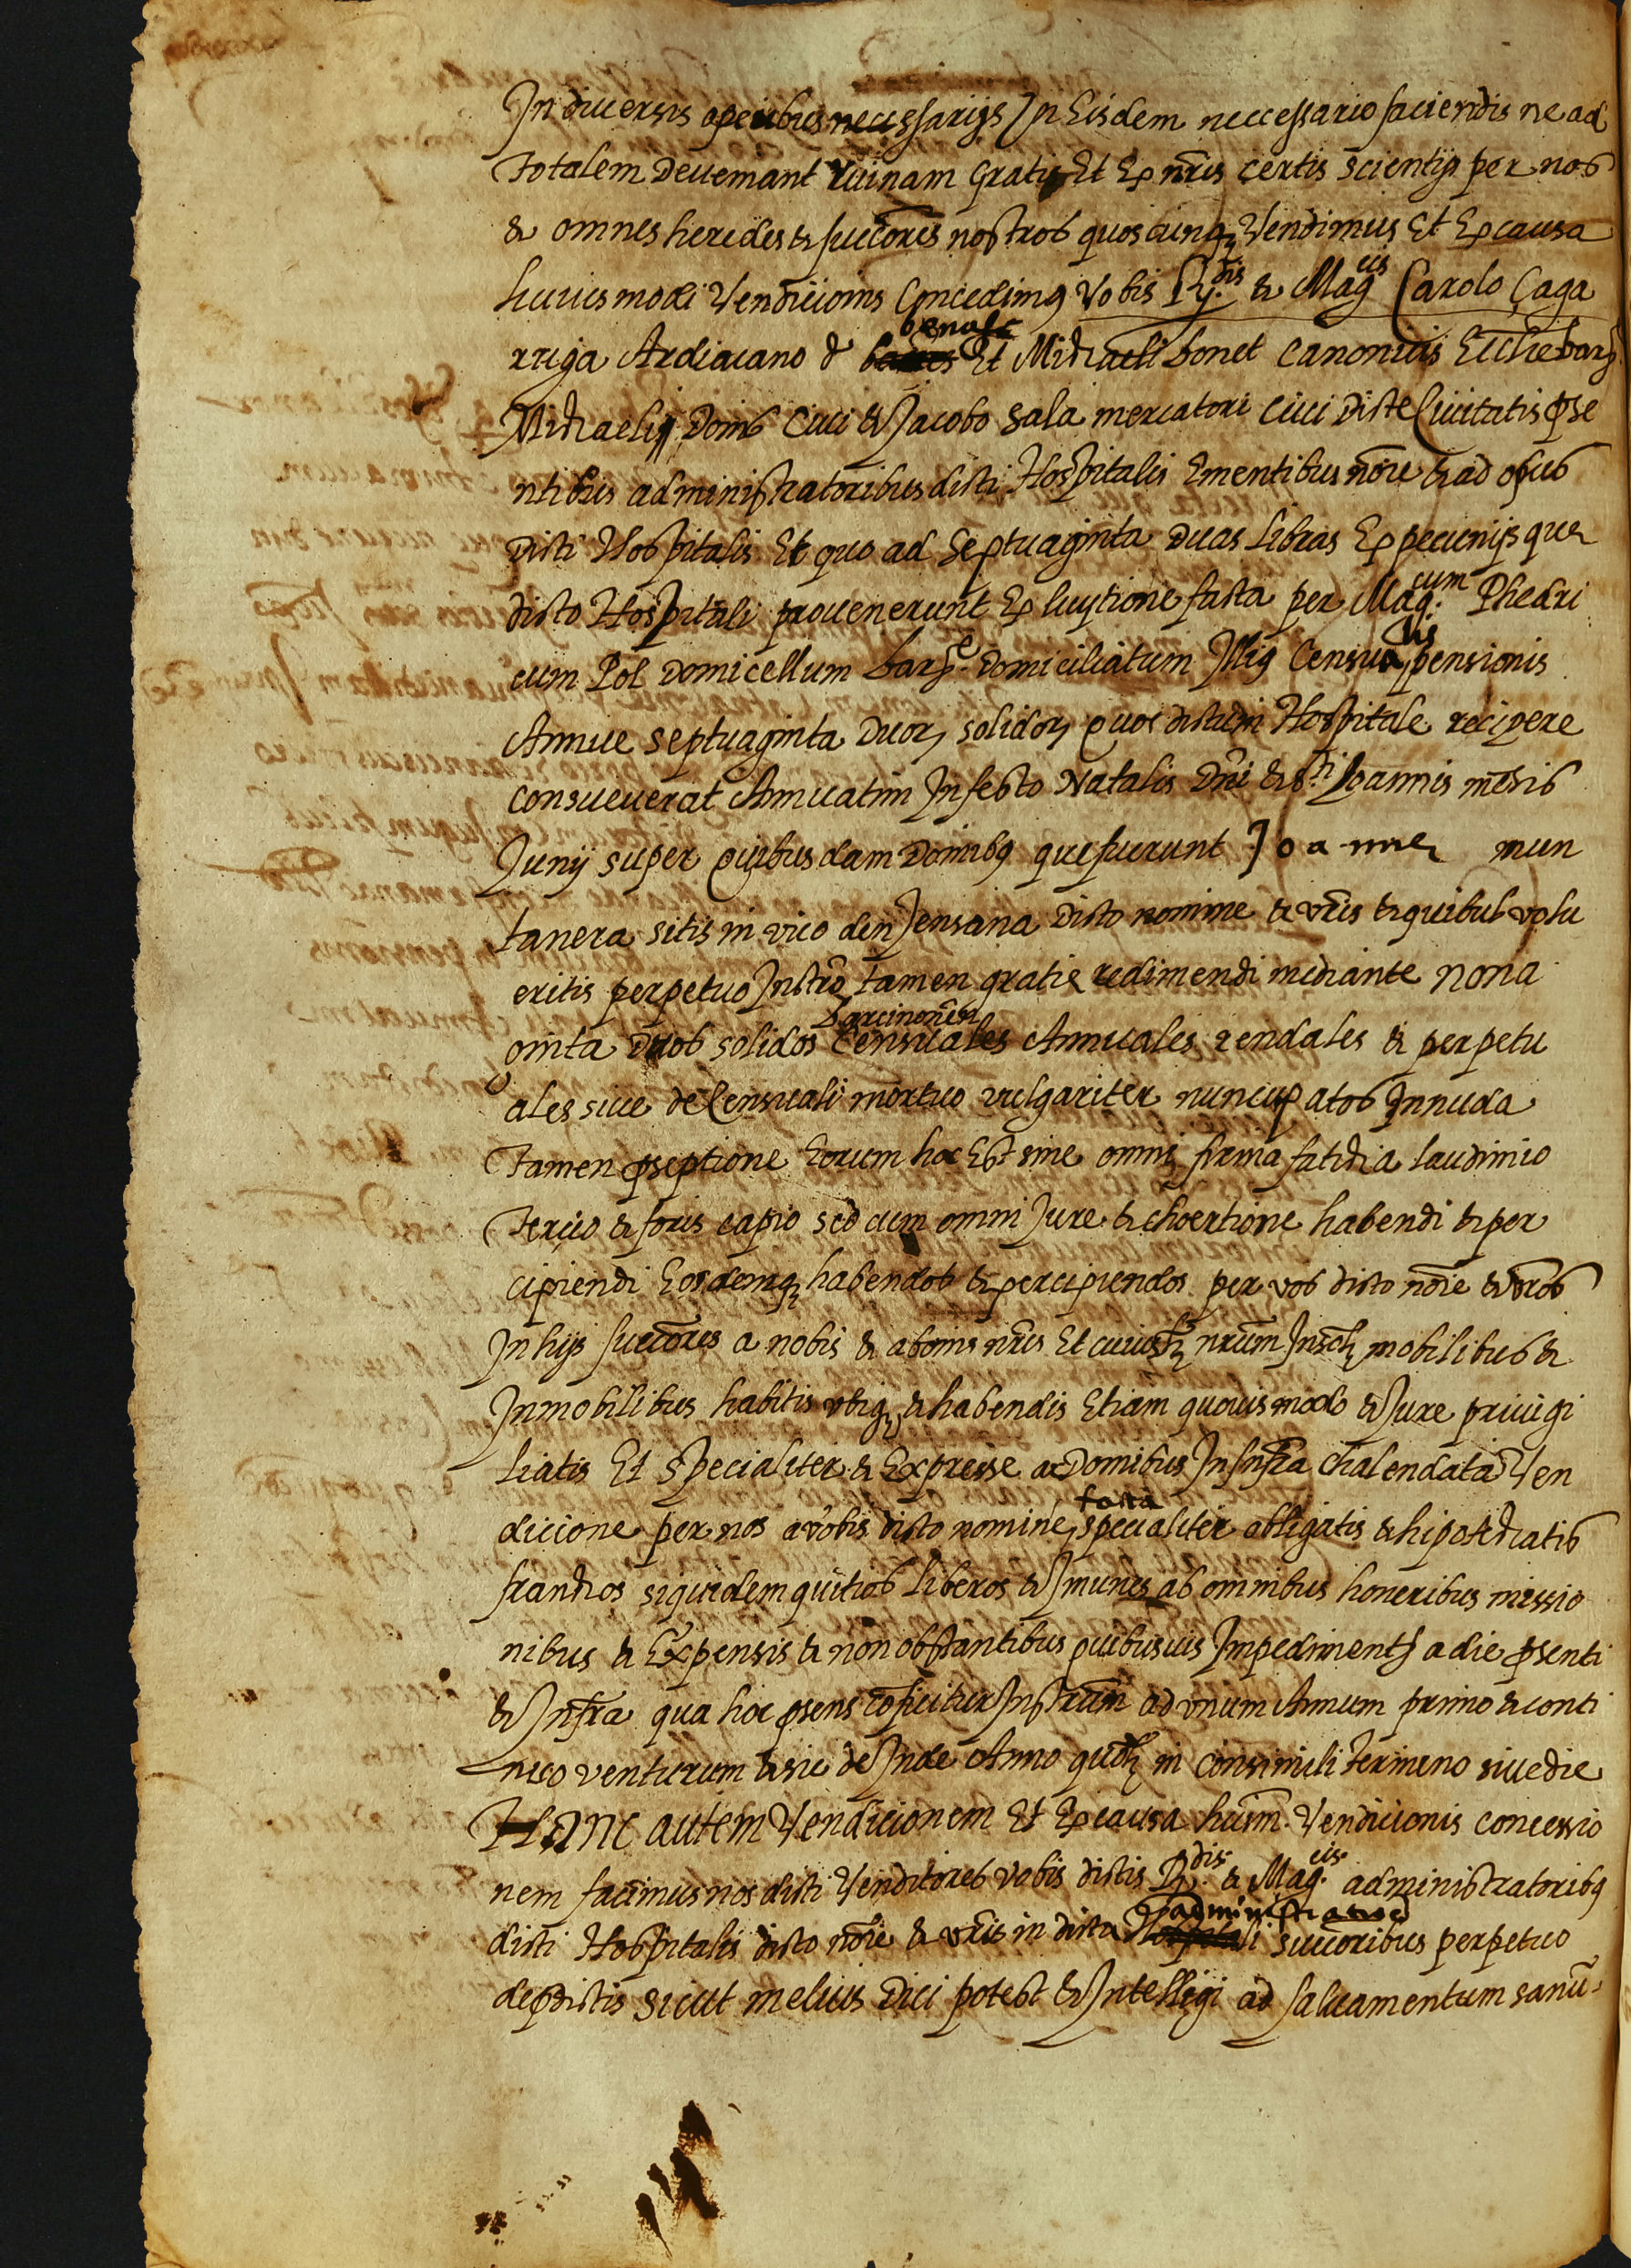 In diuersis operibus necessarijs In Eisdem neccessario faciendis ne ad
totalem deuemant Ruinam Gratis Et Ex nr̄is certis scientijs per nos
& omnes heredes & succōres nostros quoscunqꝫ Vendimus Et Ex causa
huiusmodi Vendicionis Concedimꝯ Vobis Rꝫ.dis & Magcis Carolo Çaga
rriga Ardiacano d benasc Et Michaeli bonet canonicis Ecclīe barꝫ
Michaeli Doms Ciui & Jacobo Sala mercatori Ciui dicte Ciuitatis p̄se
ntibus administratoribus dicti Hospitalis Ementibus nōie & ad opus
dicti Hospitalis Et quo ad Septuaginta duas Libras Ex pecunijs que
dicto Hospitali prouenerunt Ex luytione facta per Mag.cum Phedri
cum Pol Domicellum barꝫe. domiciliatum Illiꝯ Censualis pensionis
Annue septuaginta duorꝫ solidorꝫ quos dictum Hospitale recipere
consueuerat Annuatim In festo Natalis Dn̄i & s.ti Joannis mēsis
Junij super quibusdam domibꝯ que fuerunt Joanne mun
tanera sitis in vico den Jensana dicto nomine & vr̄is & quibus volu
eritis perpetuo Instrō tamen gratie redimendi mediante nona
ginta duos solidos Barcinonēn censuales Annuales rendales & perpetu
ales siue de Censuali mortuo vulgariter nuncupatos In nuda
tamen p̄ceptione Eorum hoc Est sine omni firma faticha laudimio
tercio & foris capio sed cum omni Jure & choertione habendi & per
cipiendi Eosdemqꝫ habendos & percipiendos per vos dicto nōie & vr̄os
In hijs succōres a nobis & a bonis nr̄is Et cuiuslꝫ nr̄um Insolꝫ mobilibus &
Inmobilibus habitis vbiqꝫ & habendis Etiam quouis modo & Jure priuigi
liatis Et Specialiter & Expresse ac Domibus In Infra chalendata Ven
dicione per nos a vobis dicto nomine facta specialiter obligatis & hipothecatis
franchos siquidem quitios Liberos & Jmunes ab omnibus honeribus missio
nibus & Expensis & non obstantibus quibusuis Impedimentꝭ a die p̄senti
& Infra qua hoc p̄sens cōficitur Instrum̄ ad vnum Annum primo & conti
nuo venturum & sic deinde Anno quolꝫ in consimili termino siue die
HANC autem Vendicionem Et Ex causa huiūsm. Vendicionis concessio
nem facimus nos dicti Venditores vobis dictis Rꝫ.dis. & Mag.cis. administratoribꝯ
dicti Hospitalis dicto nōie & vr̄is in dicta administratioē succoribus perpetuo
de p̄dictis sicut melius Dici potest & Intelligi ad saluamentum sanū